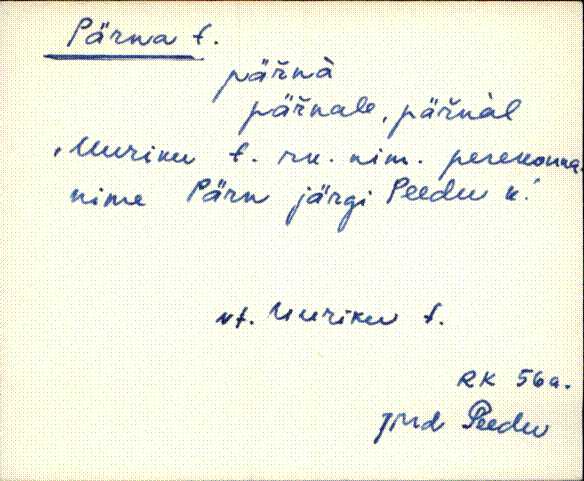 Pärna t.
päřnà
päřnale, päřnàl
Uuriku t. rk. nim. perekonna
nime Pärn järgi Peedu k.
vt. Uuriku t.
RK 56a.
Peedu